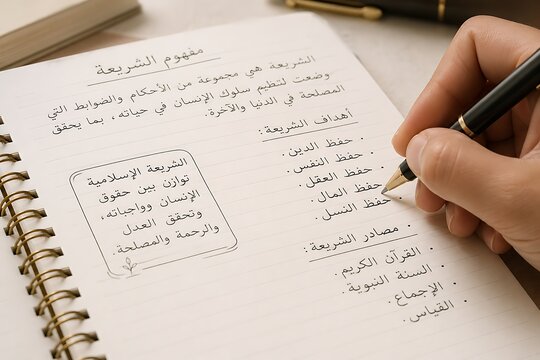 مفهوم الشريعة
الشريعة هي مجموعة من الأحكام والضوابط التي
وضعت لتنظيم سلوك الإنسان في حياته، بما يحقق
المصلحة في الدنيا والآخرة.
أهداف الشريعة:
· حفظ الدين.
· حفظ النفس.
· حفظ العقل.
· حفظ المال.
حفظ النسل.
الشريعة الإسلامية
توازن بين حقوق
الإنسان وواجباته،
وتحقق العدل
والرحمة والمصلحة.
· مصادر الشريعة:
· القرآن الكريم.
· السنة النبوية.
· الإجماع.
· القياس.